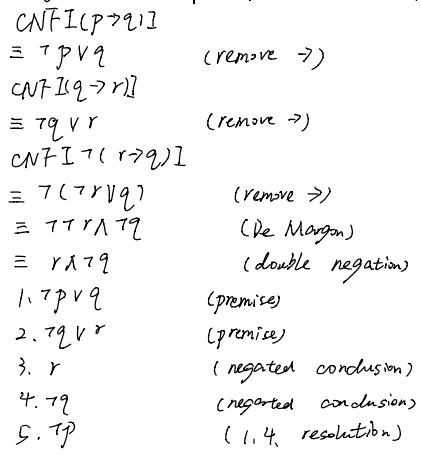 CNF[(p→q)]
≡ ¬p∨q (remove →)
CNF[(q→r)]
≡ ¬q∨r (remove →)
CNF[¬(r→q)]
≡ ¬(¬r∨q) (remove →)
≡ ¬¬r∧¬q (De Morgan)
≡ r∧¬q (double negation)
1. ¬p∨q (premise)
2. ¬q∨r (premise)
3. r (negated conclusion)
4. ¬q (negated conclusion)
5. ¬p (1, 4. resolution)